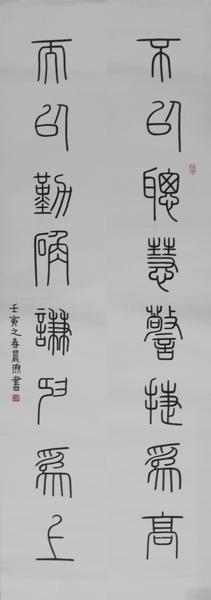 不以聰慧警捷為高
而以勤確謙抑為上
壬寅之春晨煦書